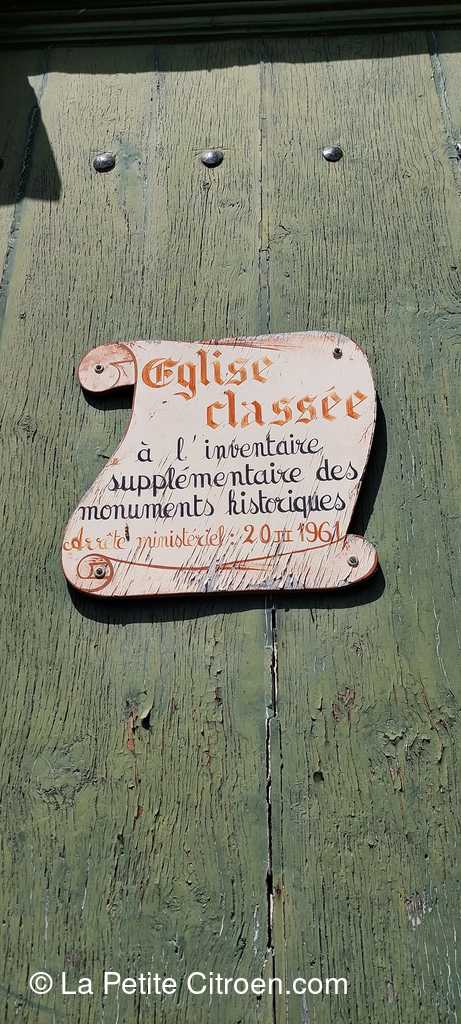 Eglise
classée
à l'inventaire
supplémentaire des
monuments historiques
Arrêté ministériel: 20 III 1961
© La Petite Citroen.com